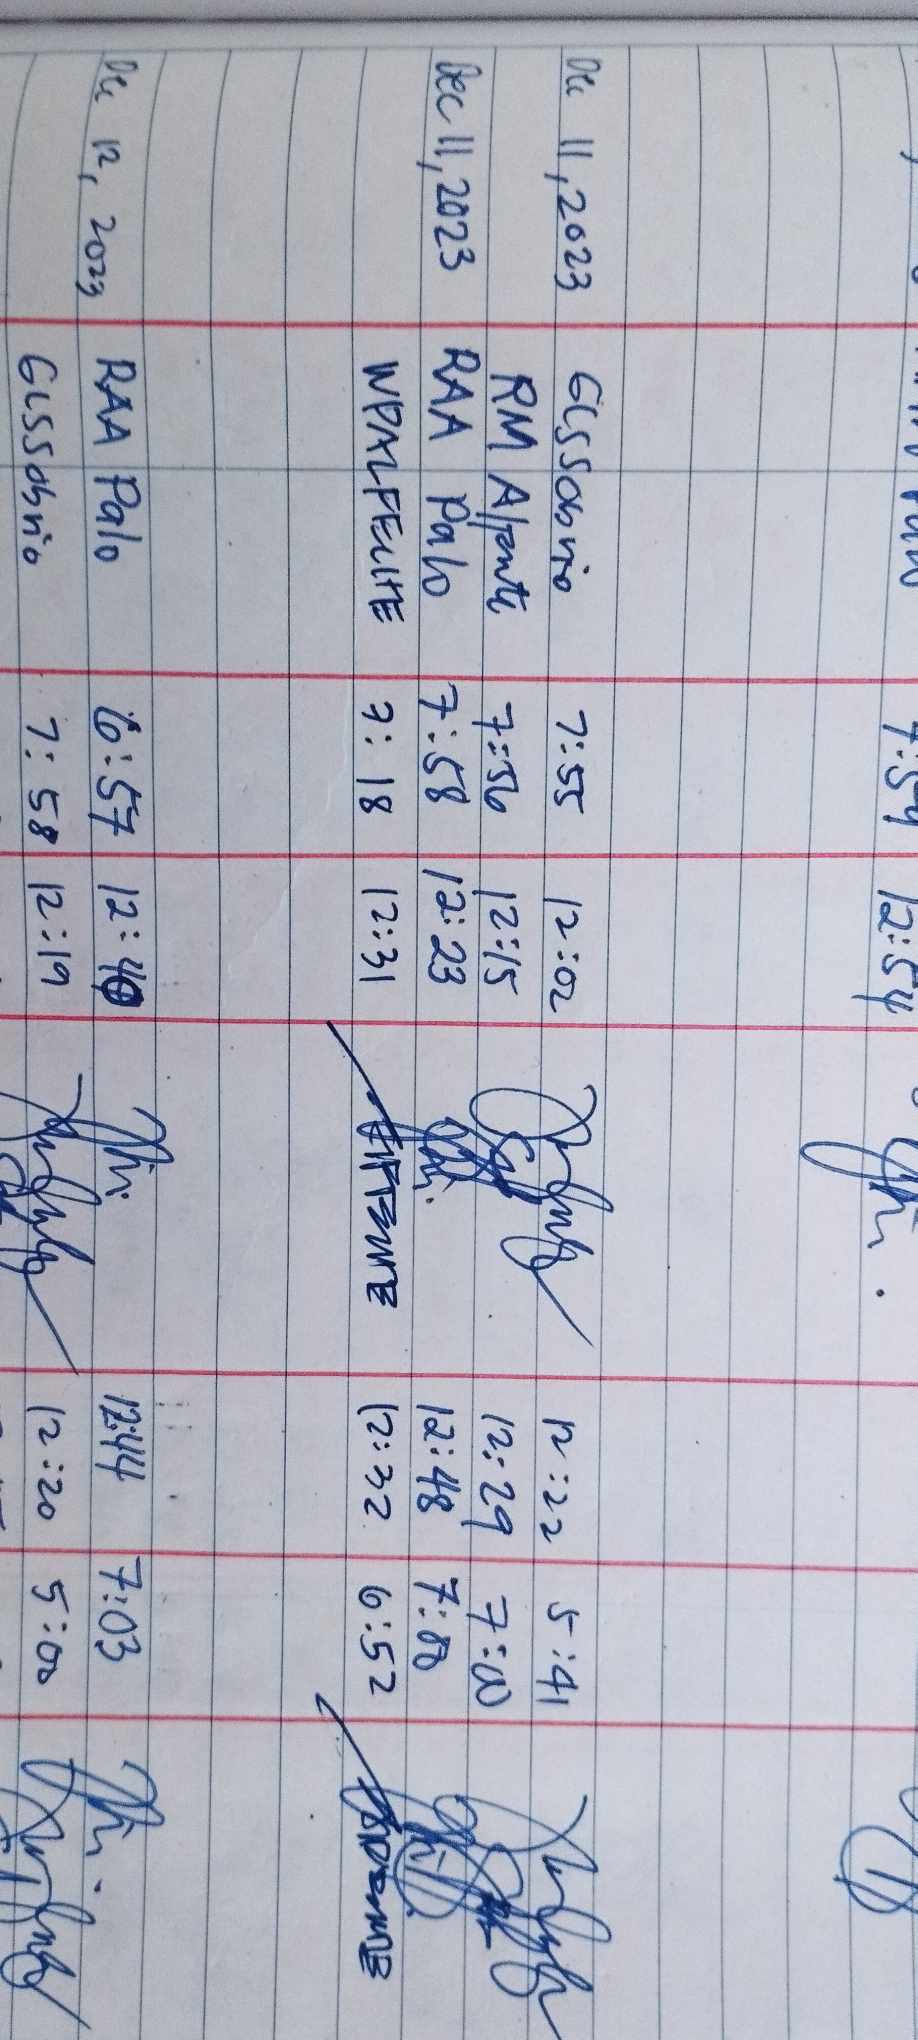 7:59 12:54
Dec 11, 2023 GLSSobrio 7:55 12:02 12:22 5:41
RM Alpante 7:56 12:15 12:29 7:00
Dec 11, 2023 RAA Palo 7:58 12:23 12:48 7:00
WPALFELIHE 7:18 12:31 12:32 6:52
Dec 12, 2023 RAA Palo 6:57 12:40 12:44 7:03
GLSSobrio 7:58 12:19 12:20 5:00